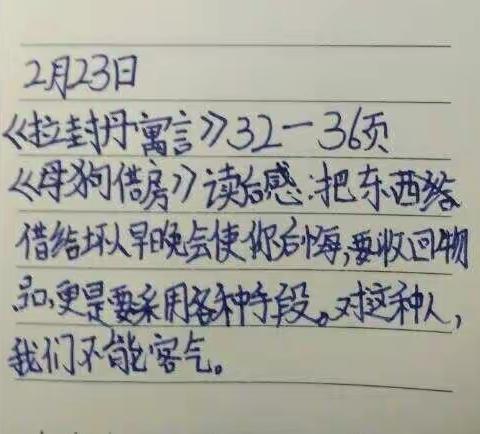 2月23日
《拉封丹寓言》32一36页
《母狗借房》读后感:把东西给
借给坏人早晚会使你后悔,要收回物
品,更是要采用各种手段。对这种人,
我们不能客气。